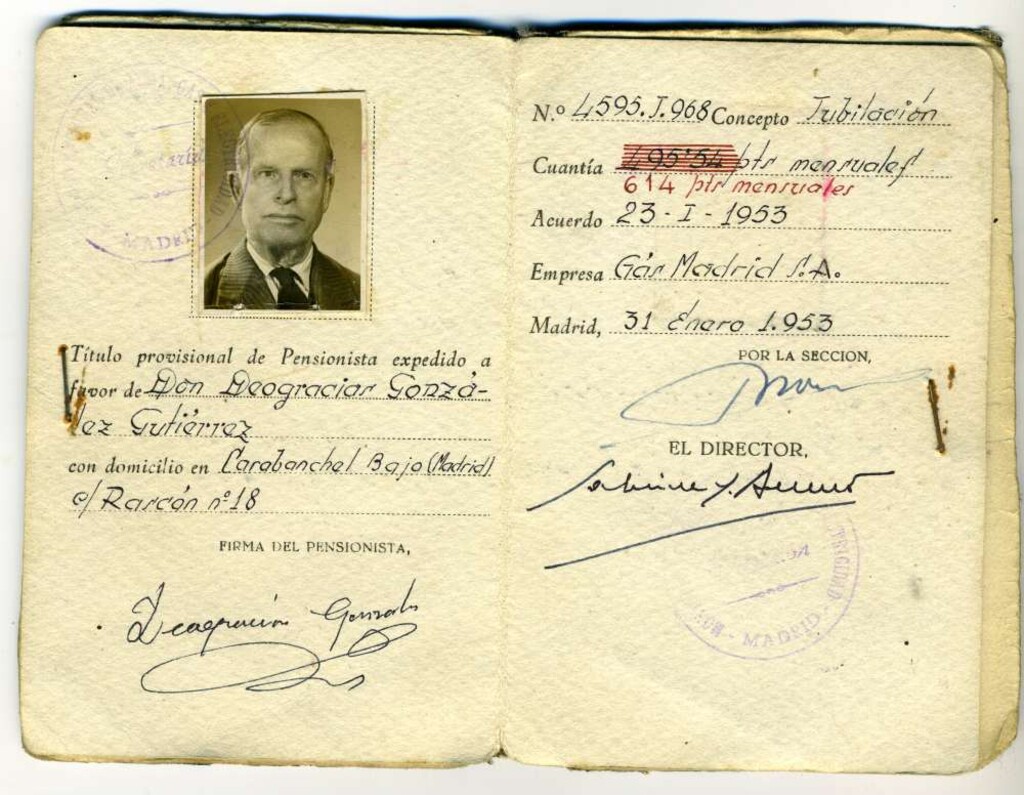 MADRID
Título provisional de Pensionista expedido a
favor de Don Deogracias Gonzá-
lez Gutiérrez
con domicilio en Carabanchel Bajo (Madrid)
c/ Rascón nº 18
FIRMA DEL PENSIONISTA,
Deogracias Gonzalez
N.º 4595.J.968 Concepto Jubilación
Cuantía 495'54 pts mensuales
614 pts mensuales
Acuerdo 23-I-1953
Empresa Gas Madrid S.A.
Madrid, 31 Enero 1.953
POR LA SECCION,
EL DIRECTOR,
MADRID